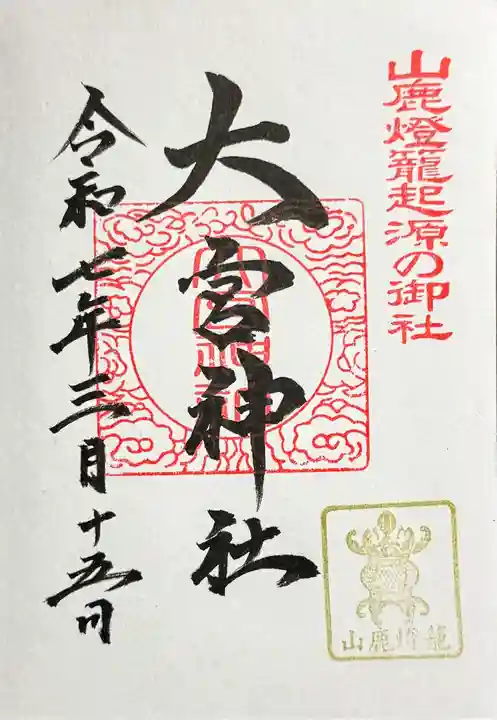 山鹿燈籠起源の御社
大宮神社
令和七年三月十五日
大宮神社
山鹿燈籠